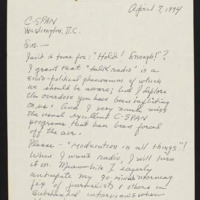 April 7, 1994
C-SPAN
Washington, D.C.
Sirs -
Isn't it time for: "Hold! Enough!"?
I grant that "talk radio" is a
socio-political phenomenon of which
we should be aware; but I deplore
the overdose you have been inflicting
on us. And I very much miss
the usual excellent C-SPAN
programs that have been forced
off the air.
Please - "Moderation in all things"!
When I want radio, I will turn
it on. Meanwhile I eagerly
anticipate my 90-minute morning
of journalists & others in